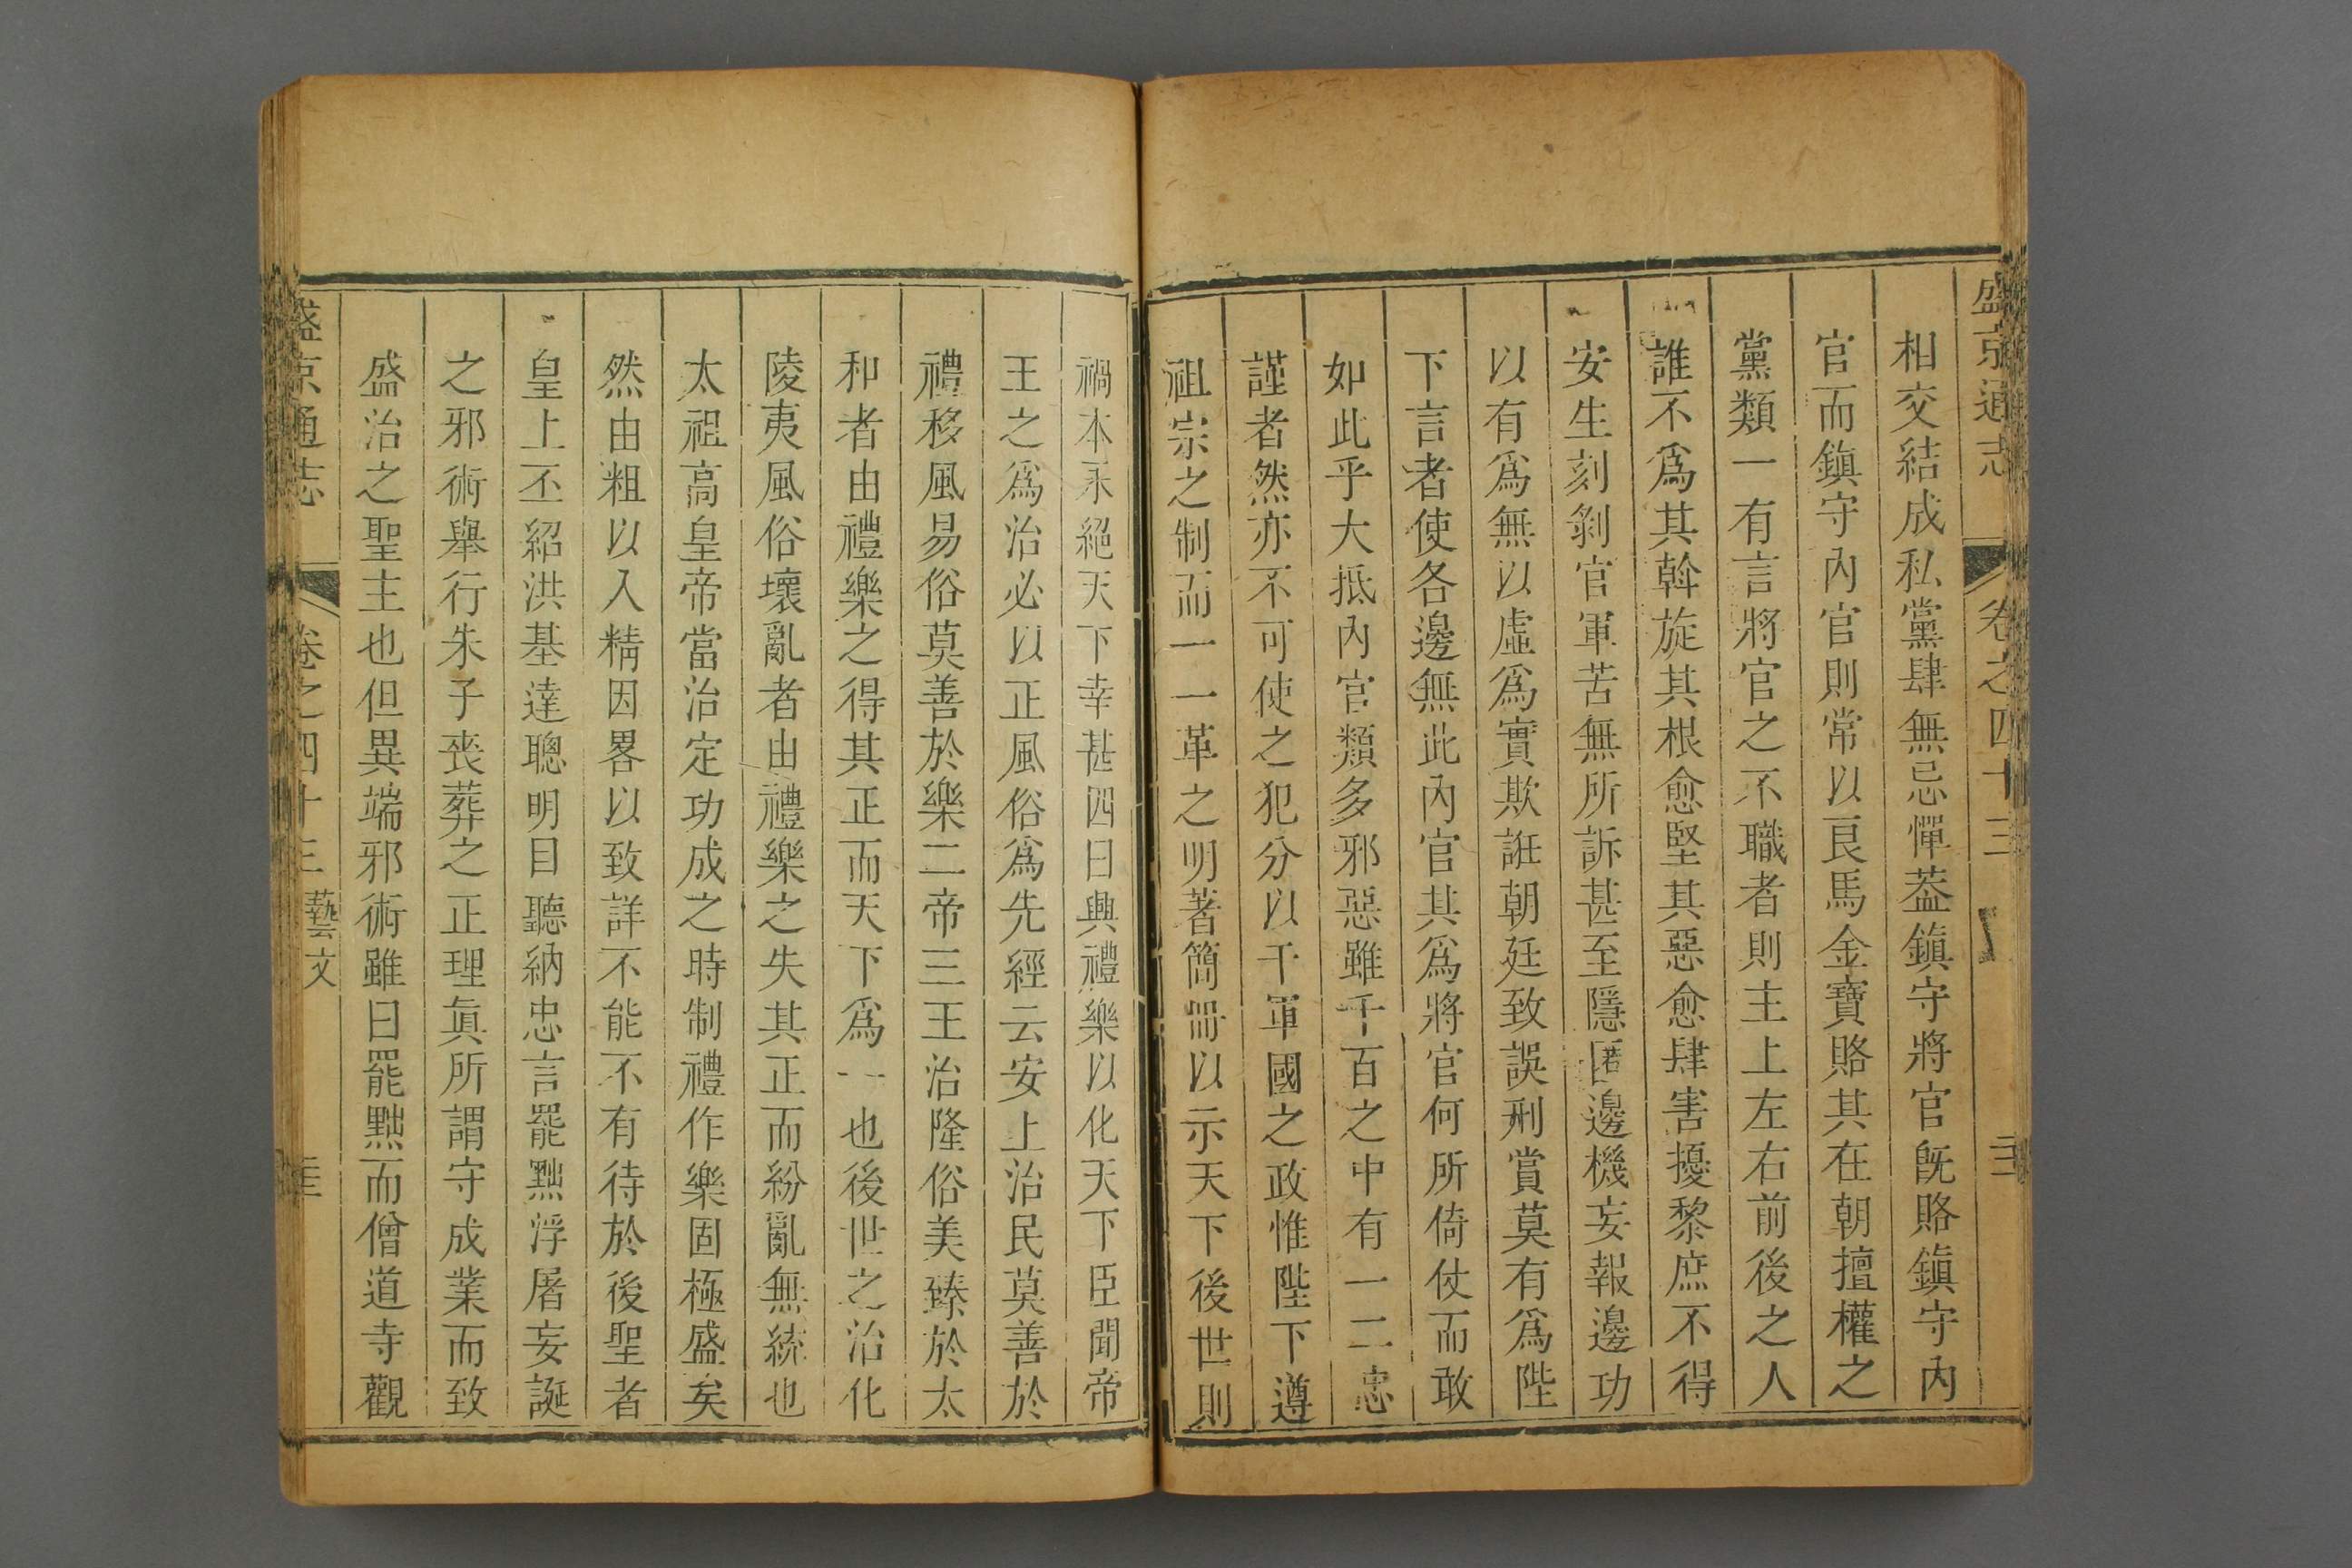 盛京通志 卷之四十三
相交結成私黨肆無忌憚葢鎮守將官旣賂鎮守內
官而鎮守內官則常以良馬金寶賂其在朝擅權之
黨類一有言將官之不職者則主上左右前後之人
誰不爲其斡旋其根愈堅其惡愈肆害擾黎庶不得
安生刻剝官軍苦無所訴甚至隱匿邊機妄報邊功
以有爲無以虛爲實欺誑朝廷致誤刑賞莫有爲陛
下言者使各邊無此內官其爲將官何所倚仗而敢
如此乎大抵內官類多邪惡雖千百之中有一二忠
謹者然亦不可使之犯分以干軍國之政惟陛下遵
祖宗之制而一一革之明著簡冊以示天下後世則
禍本永絕天下幸甚四曰興禮樂以化天下臣聞帝
王之爲治必以正風俗爲先經云安上治民莫善於
禮移風易俗莫善於樂二帝三王治隆俗美臻於太
和者由禮樂之得其正而天下爲一也後世之治化
陵夷風俗壞亂者由禮樂之失其正而紛亂無統也
太祖高皇帝當治定功成之時制禮作樂固極盛矣
然由粗以入精因畧以致詳不能不有待於後聖者
皇上丕紹洪基達聰明目聽納忠言罷黜浮屠妄誕
之邪術舉行朱子喪葬之正理眞所謂守成業而致
盛治之聖主也但異端邪術雖曰罷黜而僧道寺觀
盛京通志 卷之四十三 藝文